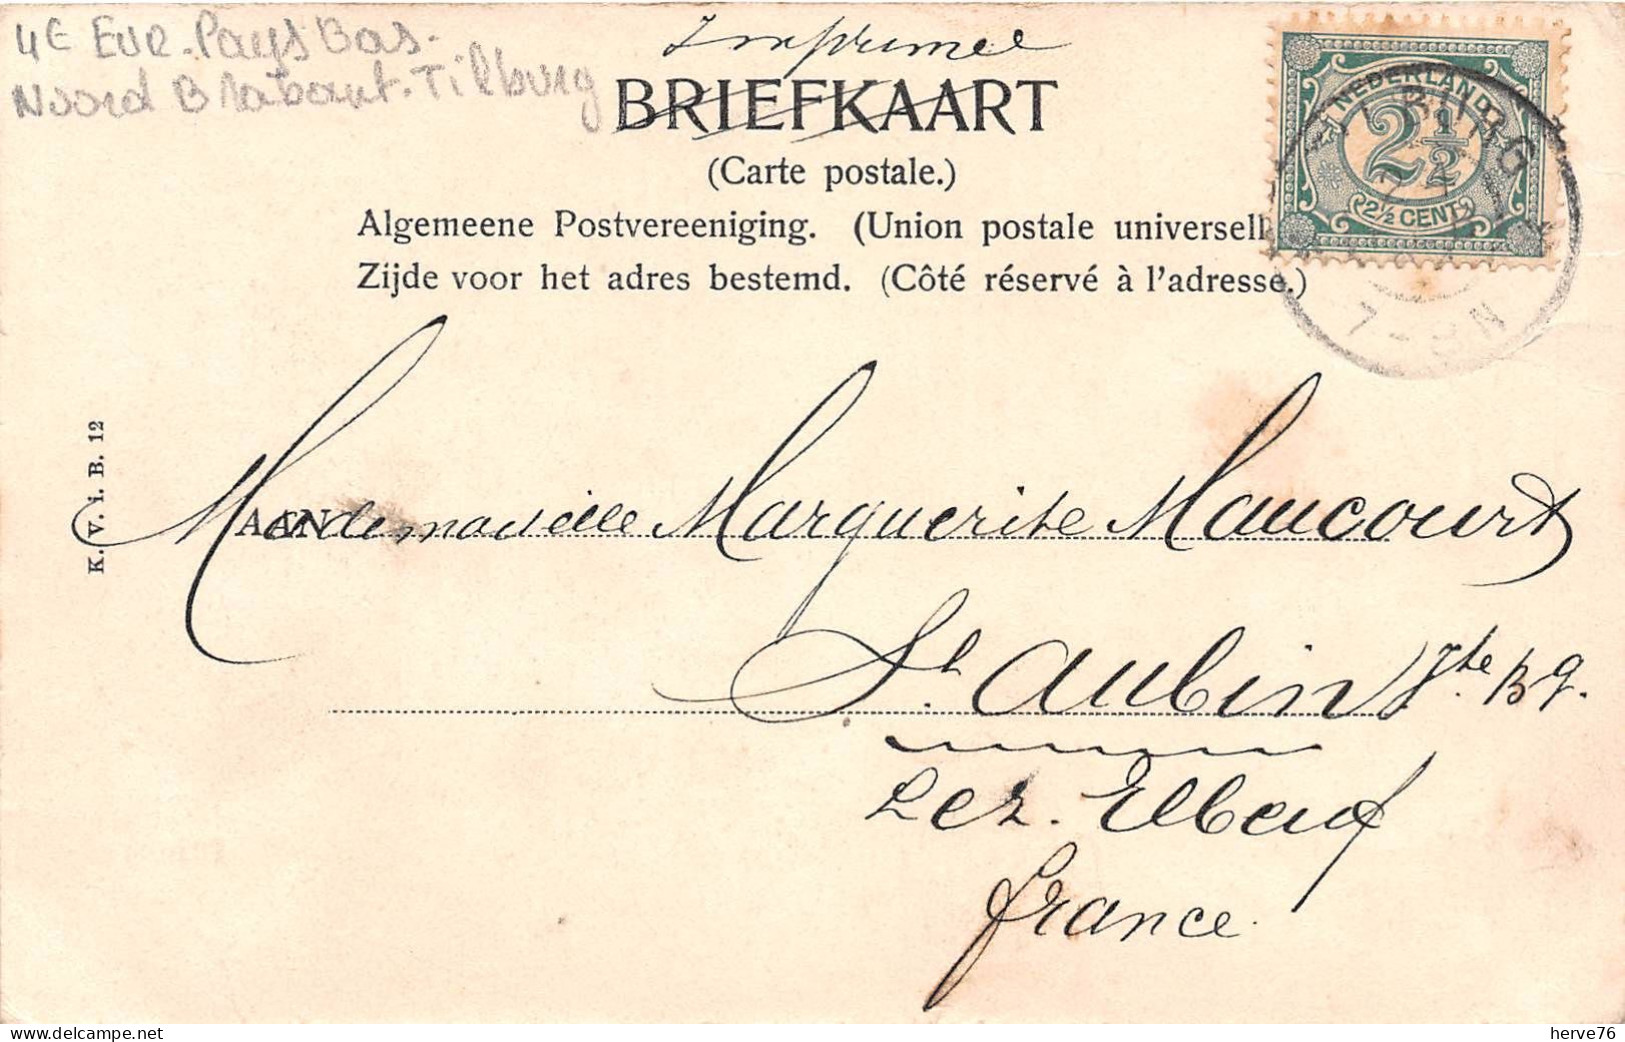 4€ Eur. Pays Bas.
Noord Brabant. Tilburg
Imprimee
BRIEFKAART
(Carte postale.)
Algemeene Postvereeniging. (Union postale universell
Zijde voor het adres bestemd. (Côté réservé à l'adresse.)
NEDERLAND
2½
2½ CENT
TILBURG
7-8N
K. V. i. B. 12
AAN
Mademoiselle Marguerite Maucourt
St. Aubin Jte B g.
Lez. Elbeuf
france.
herve76